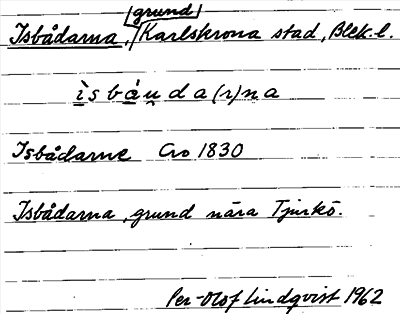 grund
Isbådarna, Karlskrona stad, Blek. l.
ìsbåu̯nda(r)na
Isbådarne Cro 1830
Isbådarna, grund nära Tjurkö.
Per-Olof Lindqvist 1962